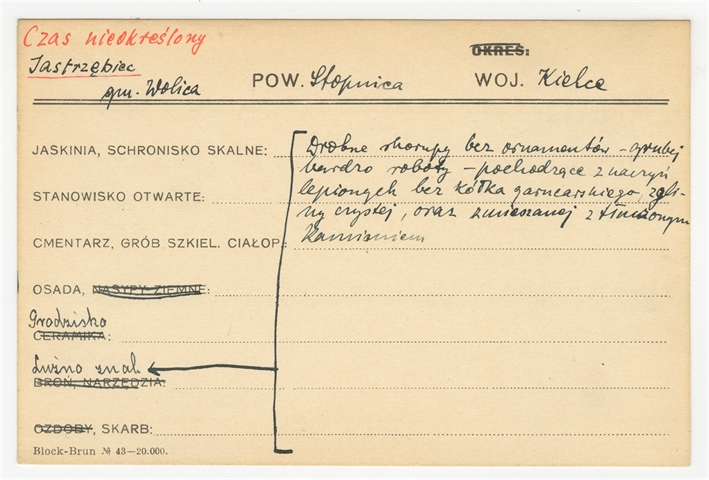 Czas nieokreślony
OKRES:
Jastrzębiec
gm. Wolica POW. Stopnica WOJ. Kielce
JASKINIA, SCHRONISKO SKALNE: Drobne skorupy bez ornamentów – grubej
bardzo roboty – pochodzące z naczyń
STANOWISKO OTWARTE: lepionych bez kółka garncarskiego, z gli-
ny czystej, oraz zmieszanej z tłuczonym
CMENTARZ, GRÓB SZKIEL. CIAŁOP.: Kamieniem
OSADA, NASYPY ZIEMNE:
Grodzisko
CERAMIKA:
Luźno znal.
BROŃ, NARZĘDZIA:
OZDOBY, SKARB:
Block-Brun № 43—20.000.